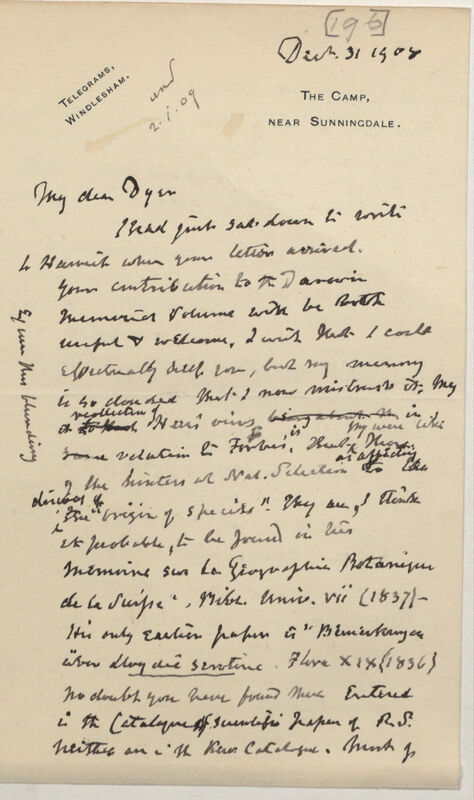 [196]
Dec. 31 1908
TELEGRAMS,
WINDLESHAM.
and
2.1.09
THE CAMP,
NEAR SUNNINGDALE.
My dear Dyer
I had just sat down to write
to Harriet when your letter arrived.
Your contribution to the Darwin
Memorial Volume will be both
useful & welcome, I wish that I could
effectually help you, but my memory
is so clouded that I now mistrust it. My
recollection of
Heer's views in
relation to Forbes' is they were like
of the hinters at Nat. Selection as affecting
discovery of
the "origin of species". They are, I think
it probable, to be found in his
Memoire sur la Géographie Botanique
de la Suisse", Bibl. Univ. vii (1837) –
His only earlier paper is "Bemerkungen
über serotina. Flora XIX (1836)
No doubt you have found these entered
in the Catalogue of Scientific Papers of R.S.
neither are in the Kew Catalogue. Much of
Excuse this blundering